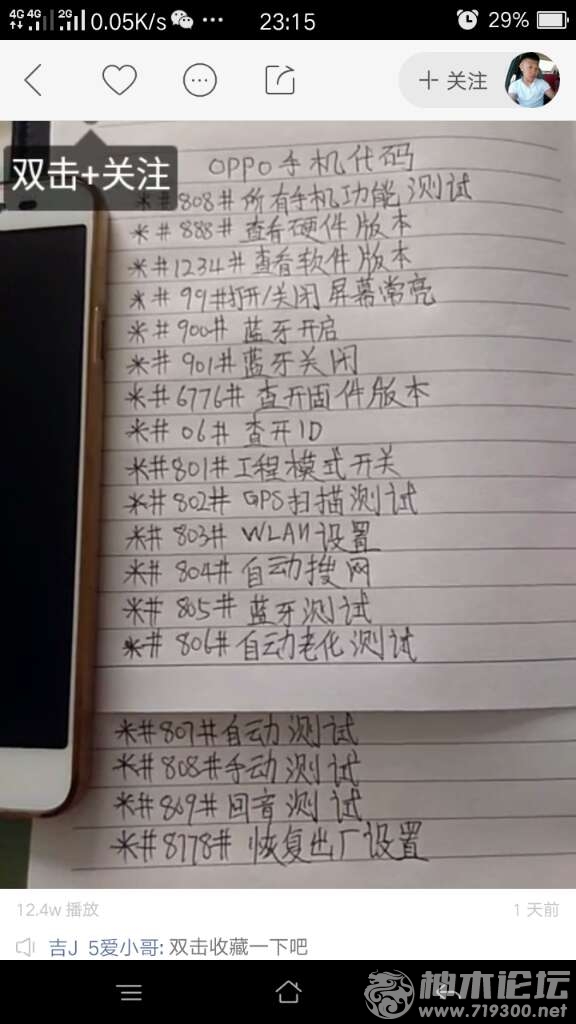 4G 4G 2G 0.05K/s ··· 23:15 29%
+ 关注
双击+关注
OPPO手机代码
*#808#所有手机功能测试
*#888#查看硬件版本
*#1234#查看软件版本
*#99#打开/关闭屏幕常亮
*#900#蓝牙开启
*#901#蓝牙关闭
*#6776#查开固件版本
*#06#查开ID
*#801#工程模式开关
*#802#GPS扫描测试
*#803#WLAN设置
*#804#自动搜网
*#805#蓝牙测试
*#806#自动老化测试
*#807#自动测试
*#808#手动测试
*#869#回音测试
*#8778#恢复出厂设置
12.4w 播放 1 天前
吉J 5爱小哥: 双击收藏一下吧
柚木论坛
www.719300.net